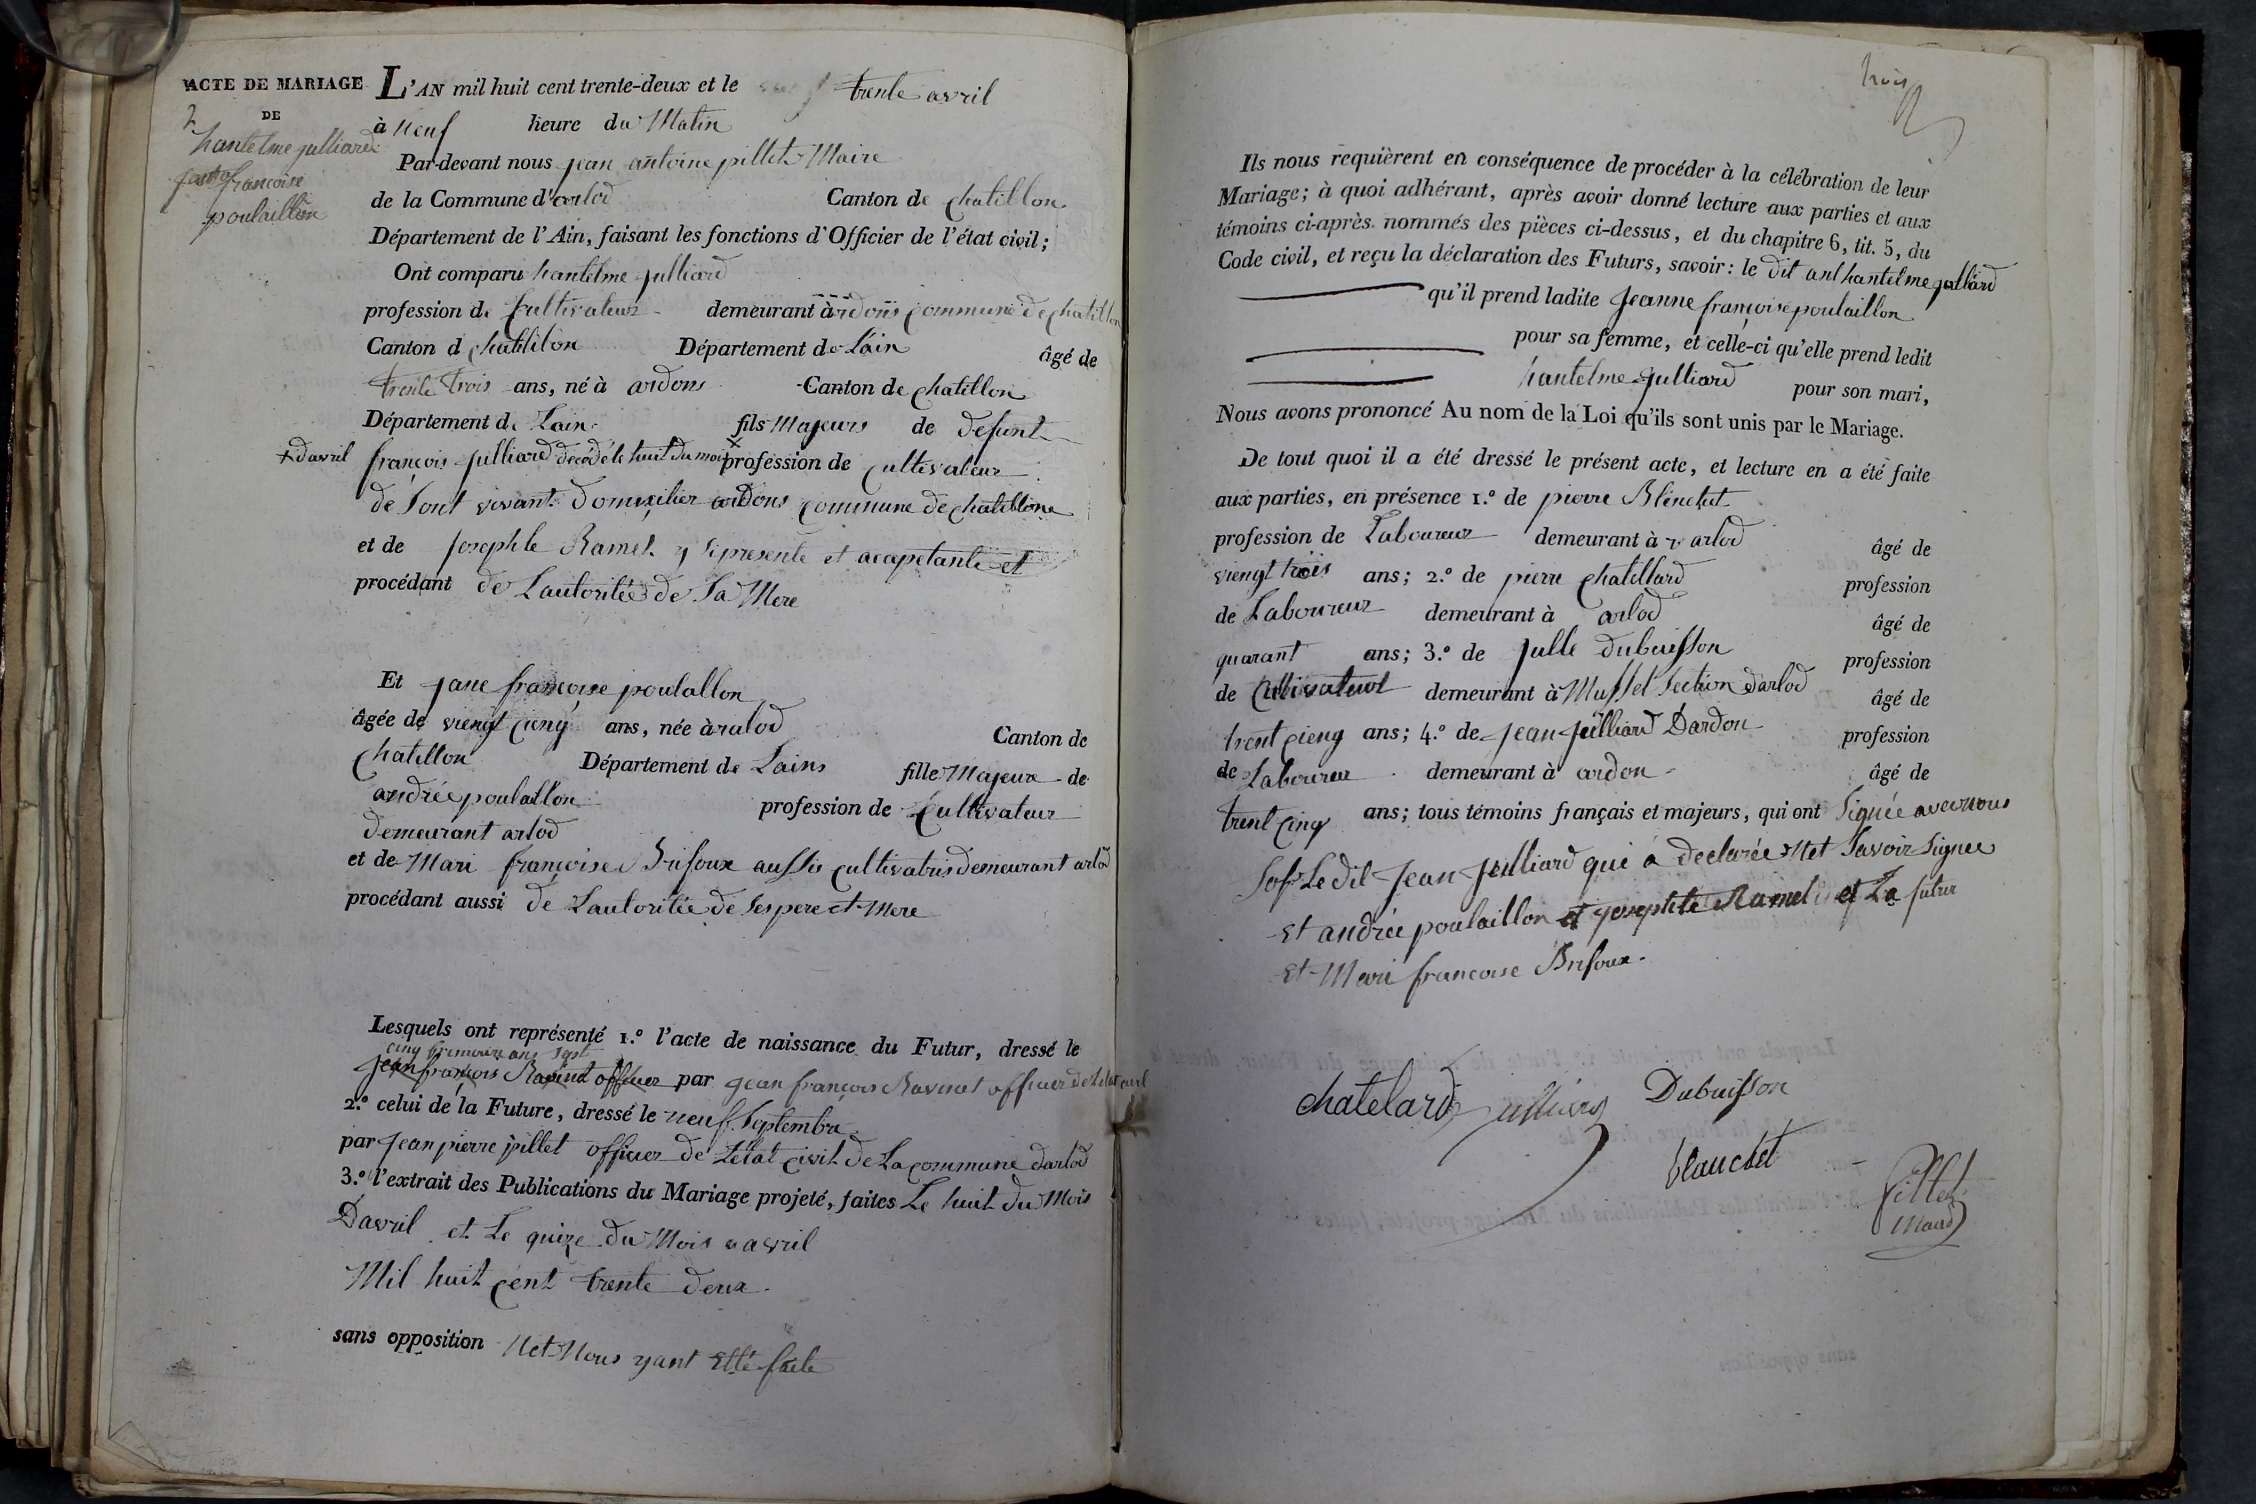 ACTE DE MARIAGE
DE
2
hantelme julliard
françoise
poulaillon
L'AN mil huit cent trente-deux et le trente avril
à neuf heure du Matin
Par-devant nous jean antoine pillet Maire
de la Commune d'arlod Canton de chatillon
Département de l'Ain, faisant les fonctions d'Officier de l'état civil;
Ont comparu hantelme julliard
profession de Cultivateur demeurant à ardons commune de chatillon
Canton d chatillon Département de Lain âgé de
trente trois ans, né à ardons Canton de chatillon
Département de Lain fils Majeurs de defunt
x davril
françois julliard decédé le huit du mois x profession de cultivateur
de sont vivant domicilier ardons commune de chatillone
et de josephte Ramel y si presente et acceptante et
procédant de Lautoritée de Sa Mere
Et jane françoise poulallon
âgée de viengt cienq ans, née à arlod Canton de
chatillon Département de Lains fille Majeux de
andrée poulallon profession de Cultivateur
demeurant arlod
et de Mari françoise Brifoux aussis cultivatris demeurant arlod
procédant aussi de Lautoritée de Ses pere et Mere
Lesquels ont représenté 1.º l'acte de naissance du Futur, dressé le
cinq frimaire ans sept
jean françois Ravinet officier par jean françois Ravinet officier de Létat civil
2.º celui de la Future, dressé le neuf Septembre
par jean pierre pillet officier de Létat civil de La commune darlod
3.º l'extrait des Publications du Mariage projeté, faites Le huit du Mois
Davril et Le quize du Mois davril
Mil huit cent trente deux.
sans opposition Net Nous yant Etté faite
trois
Ils nous requièrent en conséquence de procéder à la célébration de leur
Mariage; à quoi adhérant, après avoir donné lecture aux parties et aux
témoins ci-après nommés des pièces ci-dessus, et du chapitre 6, tit. 5, du
Code civil, et reçu la déclaration des Futurs, savoir: le dit ant hantelme julliard
qu'il prend ladite jeanne françoise poulaillon
pour sa femme, et celle-ci qu'elle prend ledit
hantelme julliard pour son mari,
Nous avons prononcé Au nom de la Loi qu'ils sont unis par le Mariage.
De tout quoi il a été dressé le présent acte, et lecture en a été faite
aux parties, en présence 1.º de pierre Blenchet
profession de Laboureur demeurant à arlod âgé de
viengt trois ans; 2.º de pierre chatellard profession
de Laboureur demeurant à arlod âgé de
quarant ans; 3.º de julle dubuisson profession
de Cultivateur demeurant à Mussel Section darlod âgé de
trent cienq ans; 4.º de jean julliard Dardon profession
de Laboureur demeurant à ardon âgé de
trent cinq ans; tous témoins français et majeurs, qui ont Signée avec nous
Sof Le dit jean julliard qui a declarée Net Savoir Signer
Et andrée poulaillon et josephte Ramel et La futur
Et Mari francoise Brifoux.
chatelard julliard Dubuisson
blanchet
Pillet
Maire